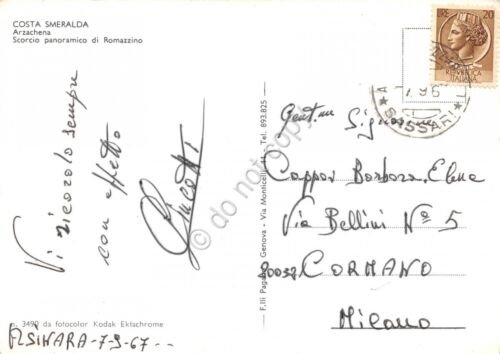 COSTA SMERALDA
Arzachena
Scorcio panoramico di Romazzino
Vi ricordo sempre
con affetto
n. 3490 da fotocolor Kodak Ektachrome
ASINARA-7-9-67--
F.lli Pagano Genova - Via Monticelli, 11 - Tel. 893.825
do not copy
LIRE 20
REPUBBLICA
ITALIANA
SASSARI
Gent.me Signore
Cappor Barbara, Elena
Via Bellini Nº 5
20032 CORMANO
Milano